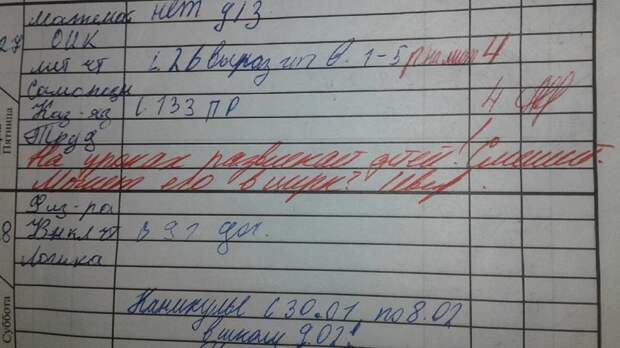 Математ нет д/з
27 ОИК
лит чт с 26 выраз чт в. 1-5 4
Самопозн
Каз-яз с. 133 ПР 4
Пятница
Труд
На уроках развлекает детей! Смешит.
Может его в цирк?
Физ-ра
8 Внкл чт
Логика
Суббота
Каникулы с 30.01 по 8.02
в школу 9.02!